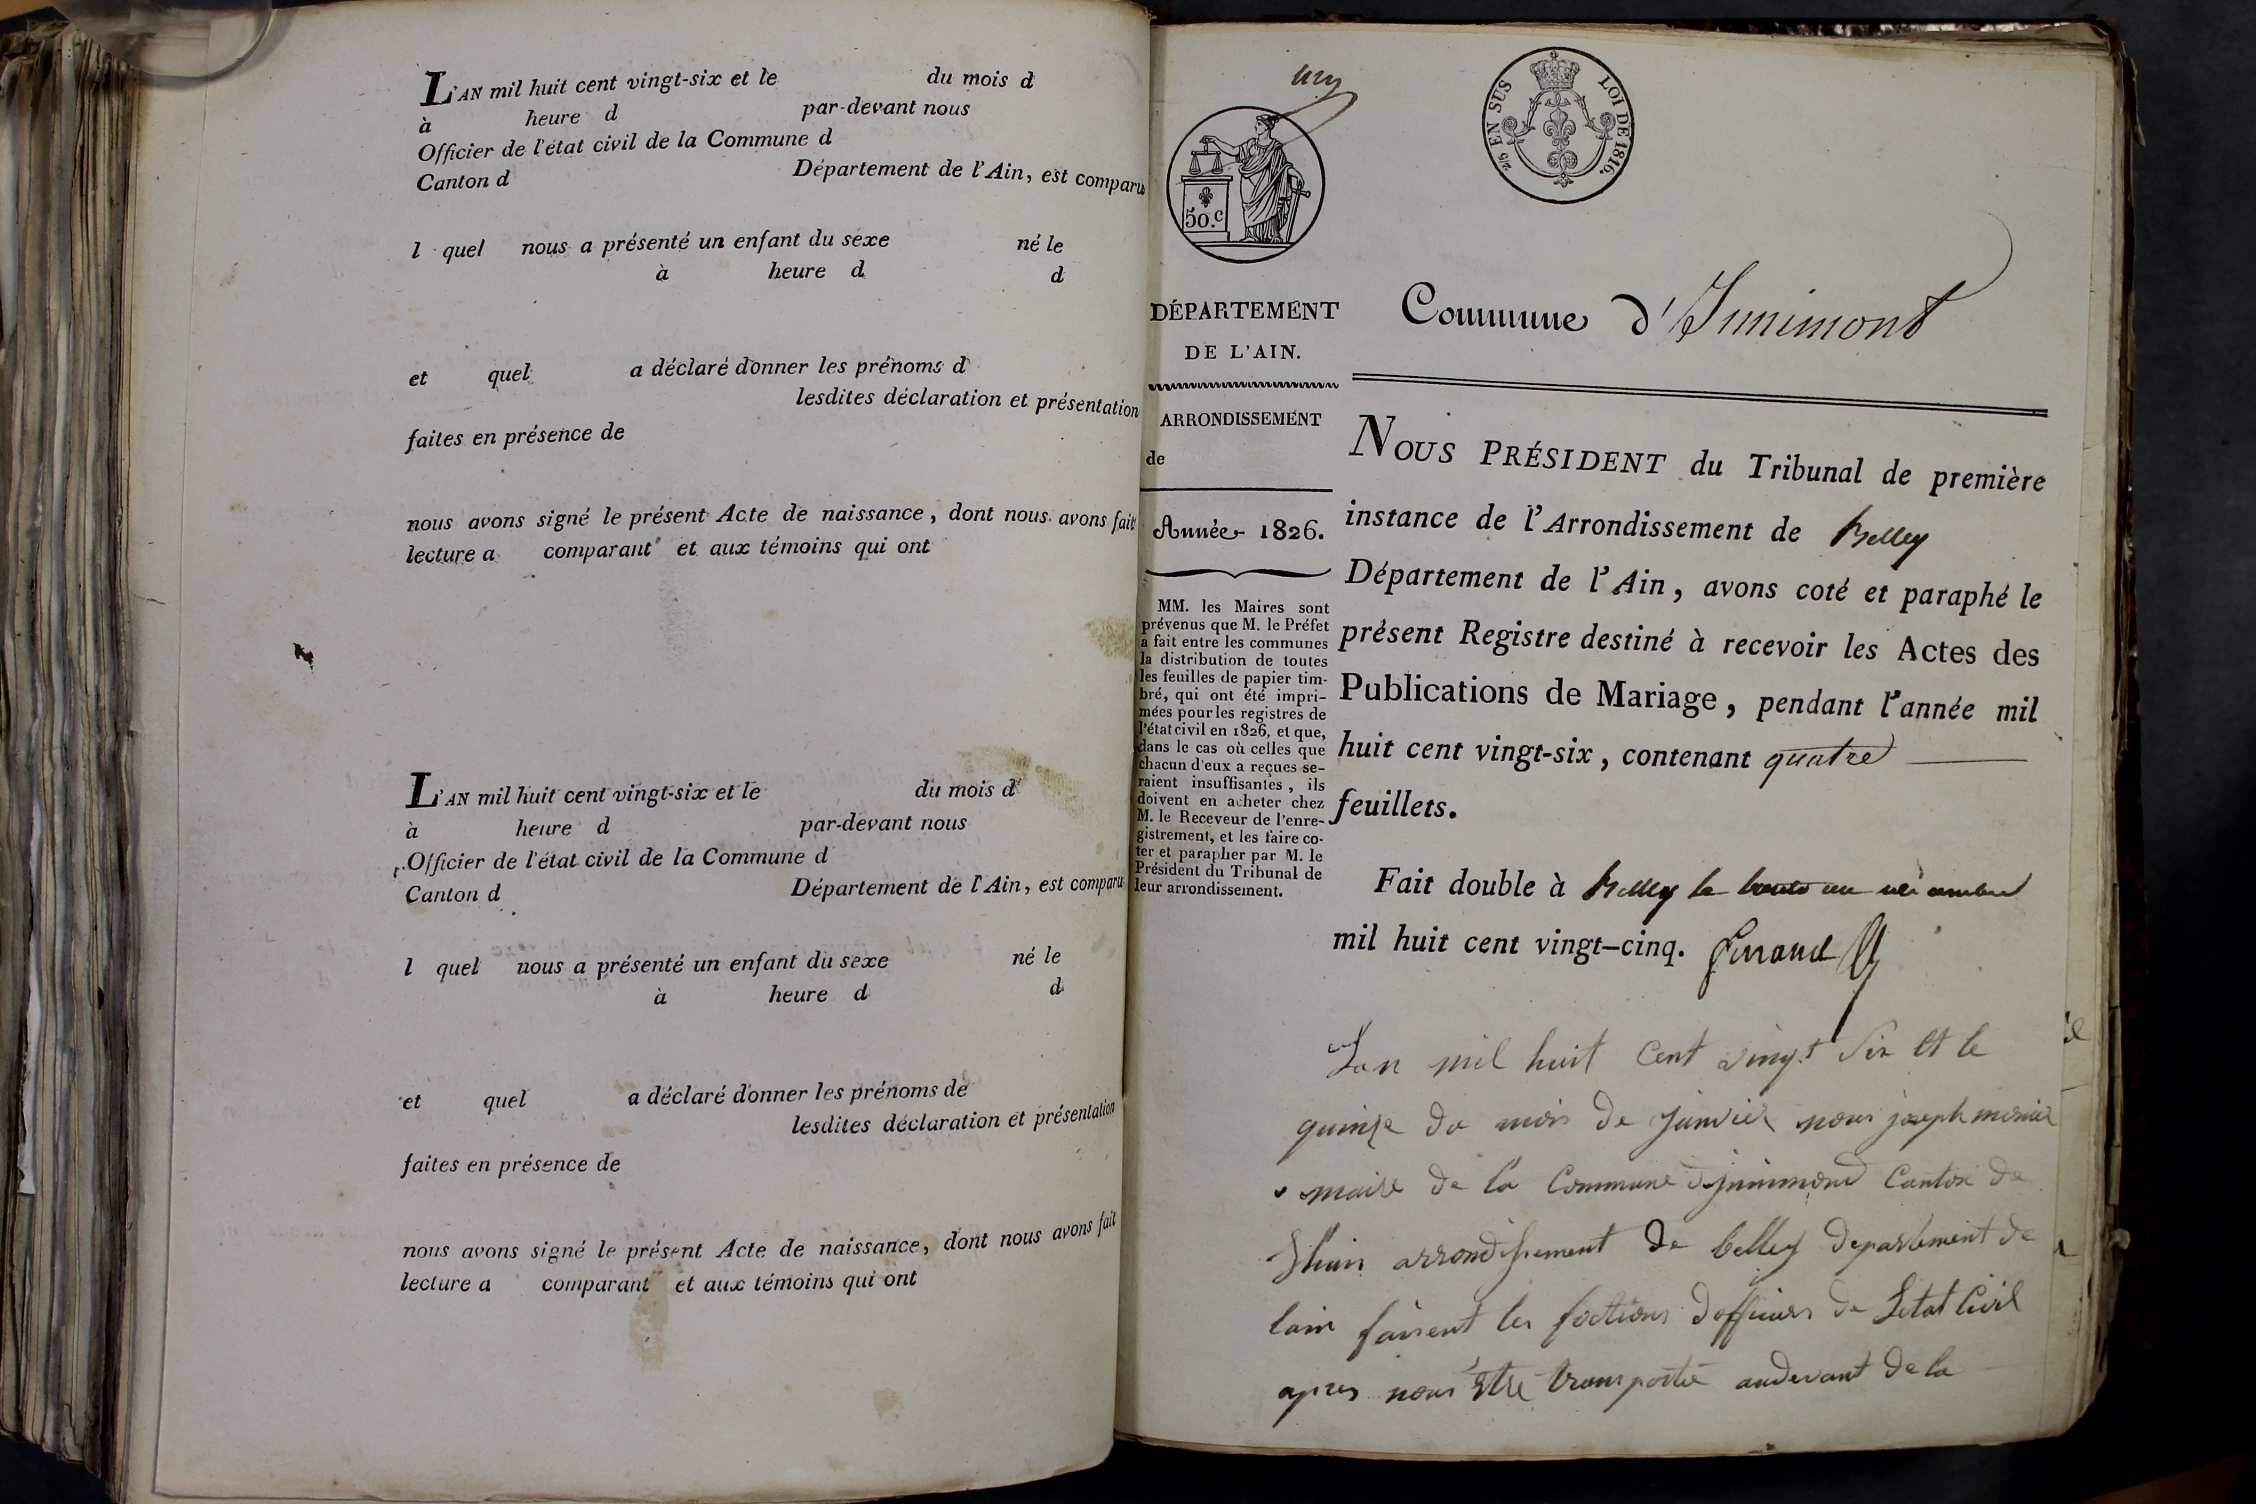 L'AN mil huit cent vingt-six et le du mois d
à heure d par-devant nous
Officier de l'état civil de la Commune d
Canton d Département de l'Ain, est comparu
l quel nous a présenté un enfant du sexe né le
à heure d d
et quel a déclaré donner les prénoms d
lesdites déclaration et présentation
faites en présence de
nous avons signé le présent Acte de naissance, dont nous avons fait
lecture a comparant et aux témoins qui ont
L'AN mil huit cent vingt-six et le du mois d
à heure d par-devant nous
Officier de l'état civil de la Commune d
Canton d Département de l'Ain, est comparu
l quel nous a présenté un enfant du sexe né le
à heure d d
et quel a déclaré donner les prénoms de
lesdites déclaration et présentation
faites en présence de
nous avons signé le présent Acte de naissance, dont nous avons fait
lecture a comparant et aux témoins qui ont
50.c
2/5 EN SUS LOI DE 1816.
DÉPARTEMENT
DE L'AIN.
ARRONDISSEMENT
de
Année 1826.
MM. les Maires sont
prévenus que M. le Préfet
a fait entre les communes
la distribution de toutes
les feuilles de papier tim-
bré, qui ont été impri-
mées pour les registres de
l'état civil en 1826, et que,
dans le cas où celles que
chacun d'eux a reçues se-
raient insuffisantes, ils
doivent en acheter chez
M. le Receveur de l'enre-
gistrement, et les faire co-
ter et parapher par M. le
Président du Tribunal de
leur arrondissement.
Commune d'Innimont
NOUS PRÉSIDENT du Tribunal de première
instance de l'Arrondissement de Belley
Département de l'Ain, avons coté et paraphé le
présent Registre destiné à recevoir les Actes des
Publications de Mariage, pendant l'année mil
huit cent vingt-six, contenant quatre
feuillets.
Fait double à Belley le
mil huit cent vingt-cinq.
Lan mil huit Cent vingt Six et le
quinze du mois de janvier nous joseph
maire de la Commune Canton de
arrondissement de belley departement de
lain faisent les foctions dofficiers de Letat Civil
apres nous Etre transportée audevant de la